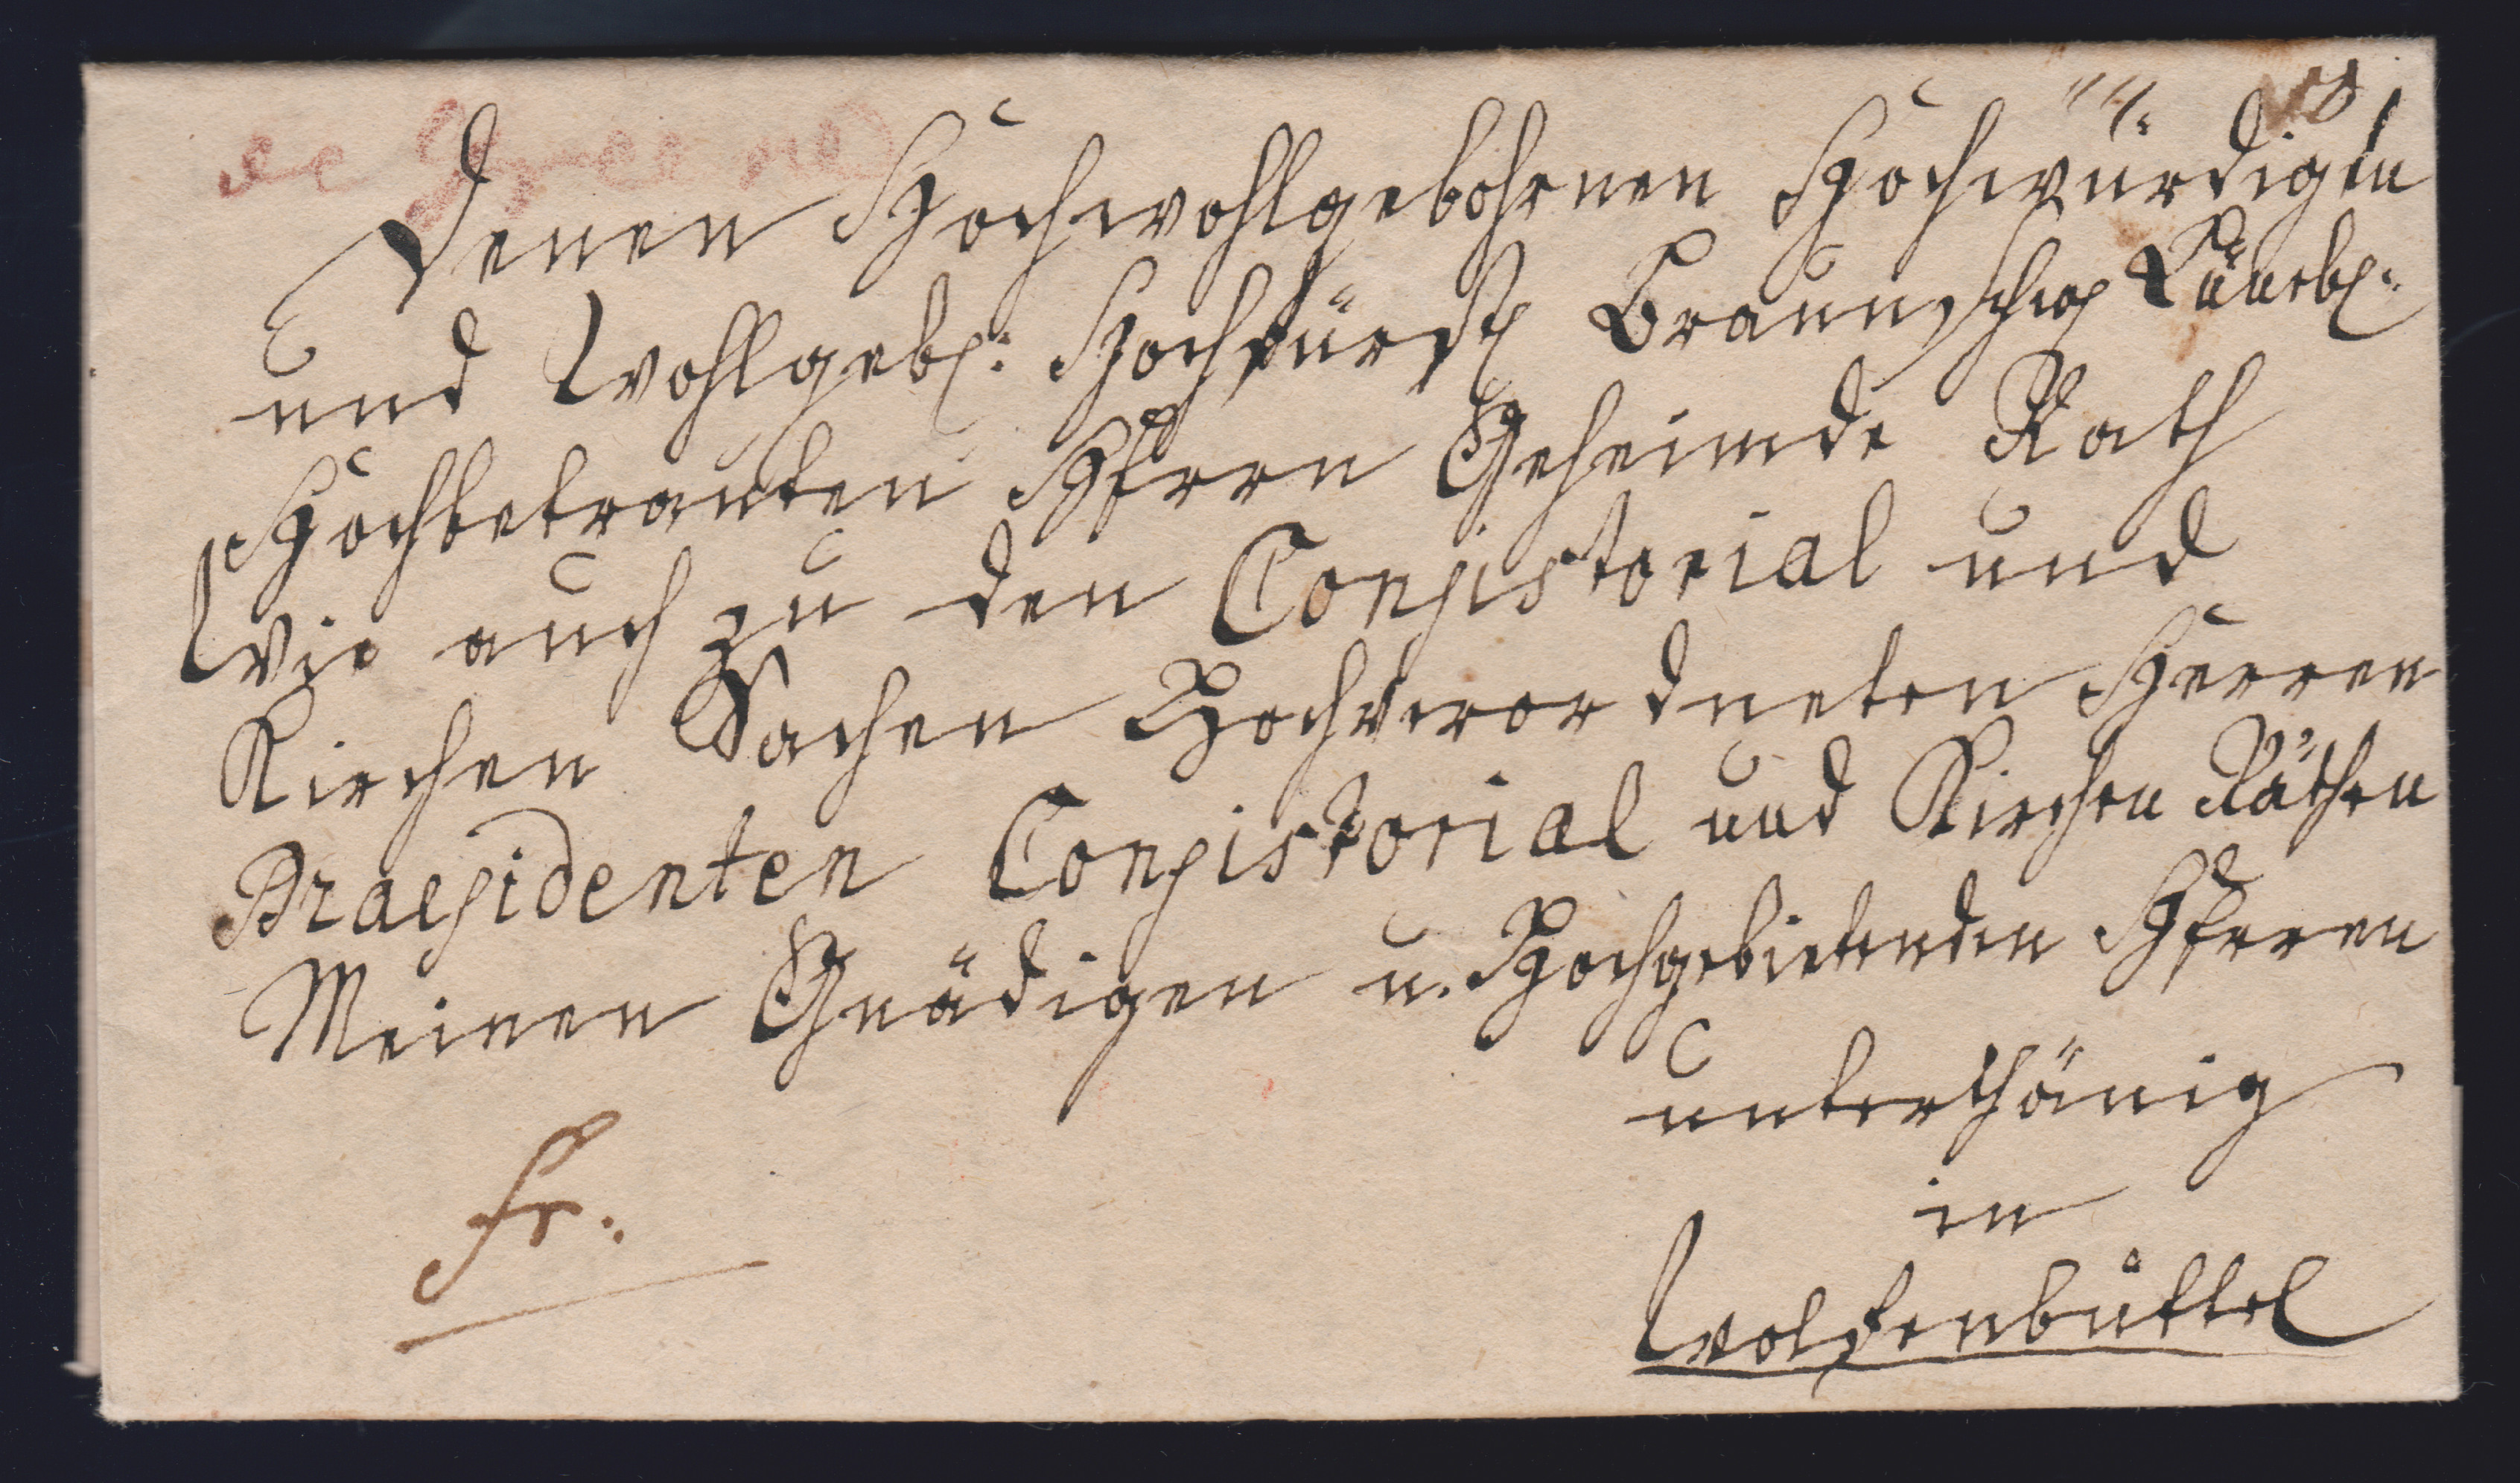 de
Denen Hochwohlgebohrnen Hochwürdigen
und Wohlgeb: Hochfürstl Braunschw Lüneb:
Hochbetrauten Herrn Geheimde Rath
Wie auch zu den Consistorial und
Kirchen Sachen Hochverordneten Herren
Praesidenten Consistorial und Kirchen Räthen
Meinen Gnädigen u. Hochgebietenden Herren
unterthänig
fr.
in
Wolfenbüttel